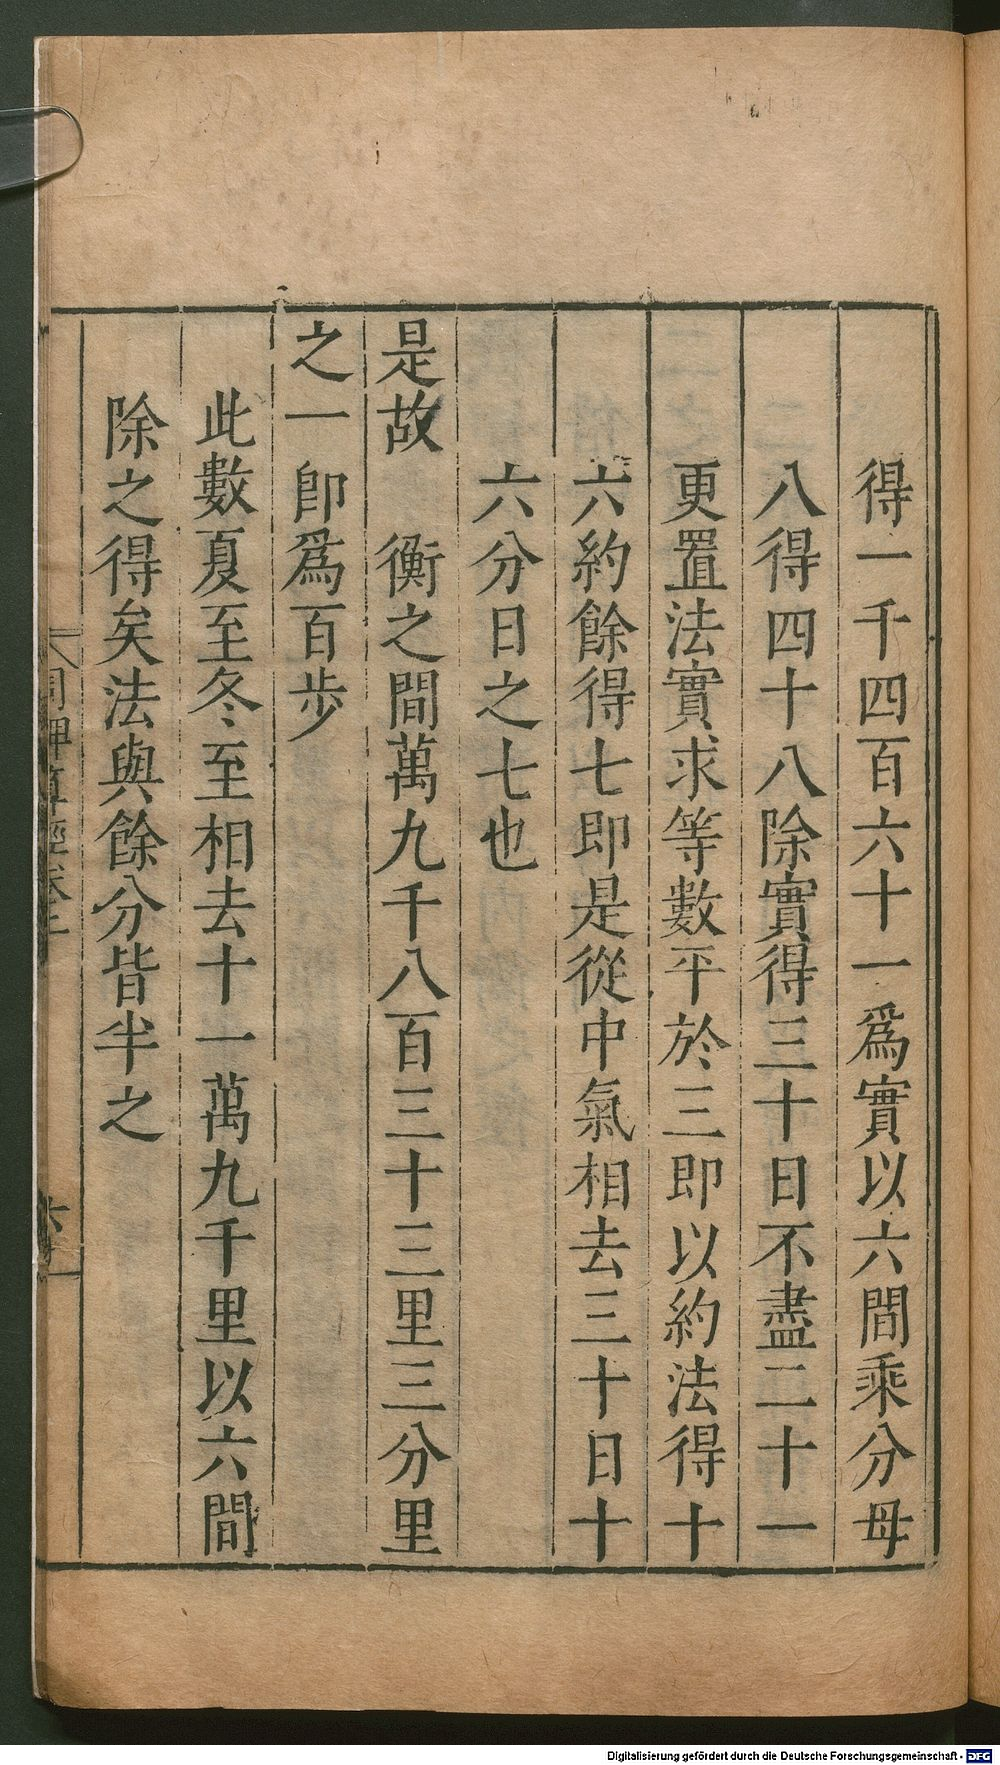 得一千四百六十一爲實以六間乘分母
八得四十八除實得三十日不盡二十一
更置法實求等數平於三即以約法得十
六約餘得七即是從中氣相去三十日十
六分日之七也
是故　衡之間萬九千八百三十三里三分里
之一　卽爲百步
此數夏至冬至相去十一萬九千里以六間
除之得矣法與餘分皆半之
周髀算經卷上
六
Digitalisierung gefördert durch die Deutsche Forschungsgemeinschaft - DFG